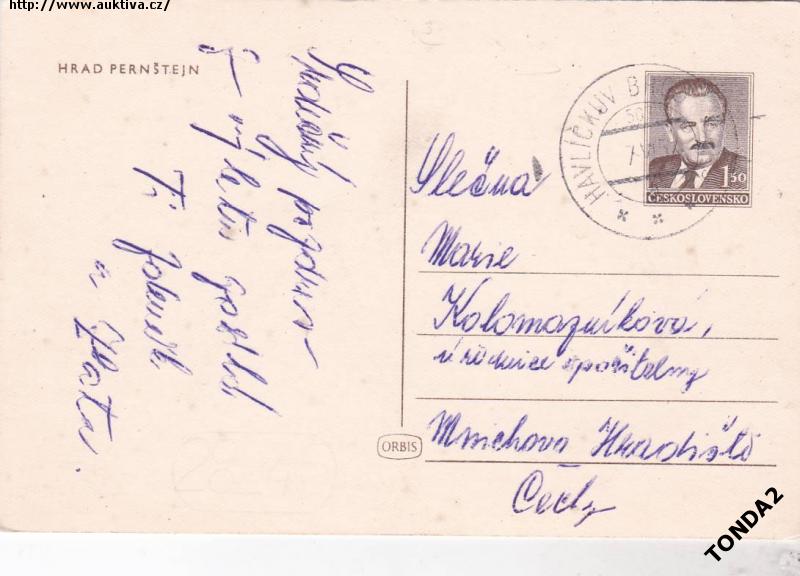 http://www.auktiva.cz/
HRAD PERNŠTEJN
Srdečný pozdrav
z výletu
Ti Zdeněk
a
HAVLÍČKŮV B
1 50
ČESKOSLOVENSKO
Slečna
Marie
Kolomazníková,
úřednice spořitelny
Mnichovo Hradiště
Čechy
ORBIS
TONDA2